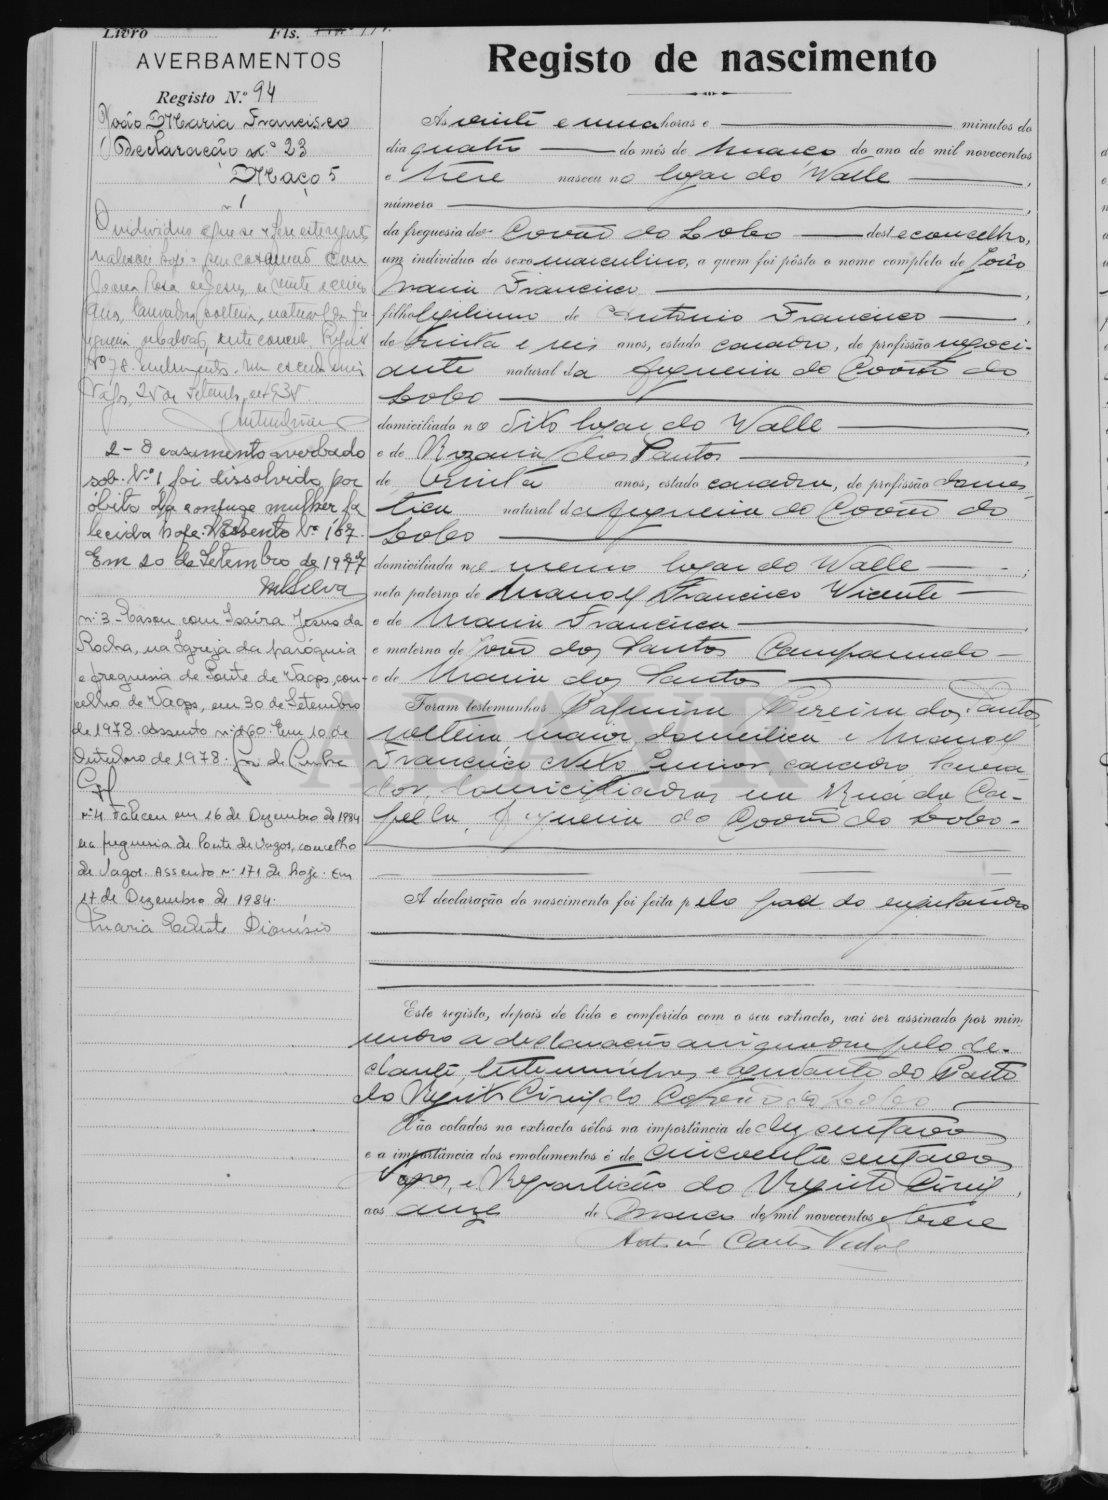 Livro Fls.
AVERBAMENTOS
Registo N.º 94
João Maria Francisco
Declaração n.º 23
Maço 5
1
O individuo a que se refere este registo
realisou hoje o seu casamento com
Joana Rosa de Jesus, de vinte e
anos, solteira, natural da fre
guesia deste concelho. Registo
Nº 78.
Vagos, 25 de Setembro
2 - O casamento averbado
sob Nº 1 foi dissolvido por
óbito da conjuge mulher fa
lecida hoje. Assento Nº 167.
Em 20 de Setembro de 1977
MSilva
nº 3 - Casou com Isaíra Jesus da
Rocha, na Igreja da paróquia
e freguesia de Ponte de Vagos, con-
celho de Vagos, em 30 de Setembro
de 1978. Assento nº 260. Em 10 de
Outubro de 1978. José da Cunha
nº 4. Faleceu em 16 de Dezembro de 1984
na freguesia de Ponte de Vagos, concelho
de Vagos. Assento nº 171 de hoje. Em
17 de Dezembro de 1984.
Maria Celeste Dionísio
Registo de nascimento
Ás vinte e uma horas e minutos do
dia quatro do mês de Março do ano de mil novecentos
e treze nasceu no logar do Valle
número
da freguesia de Covão do Lobo deste concelho,
um individuo do sexo masculino, a quem foi pôsto o nome completo de João
Maria Francisco
filho legitimo de Antonio Francisco
de trinta e seis anos, estado casado, de profissão negoci-
ante natural da freguesia do Covão do
Lobo
domiciliado no dito logar do Valle
e de Rozaria dos Santos
de trinta anos, estado casada, de profissão domes
tica natural da freguesia do Covão do
Lobo
domiciliada no mesmo logar do Valle
neto paterno de Manoel Francisco Vicente
e de Maria Francisca
e materno de João dos Santos Campanudo
e de Maria dos Santos
Foram testemunhas Palmira Pereira dos Santos
solteira, maior, domestica e Manoel
Francisco Neto Junior, casado, lavra-
dor, domiciliados na Rua da Ca-
pella, freguesia do Covão do Lobo.
A declaração do nascimento foi feita pelo pae do registando
Este registo, depois de lido e conferido com o seu extracto, vai ser assinado por mim
tendo a declaração assignada pelo de-
clarante, testemunhas e ajudante do Posto
do Registo Civil do Covão do Lobo
Vão colados no extracto sêlos na importância de dez centavos
e a importância dos emolumentos é de cincoenta centavos
Vagos, e Repartição do Registo Civil,
aos onze de Março de mil novecentos e treze
Antonio Carlos Vidal
ADAVR